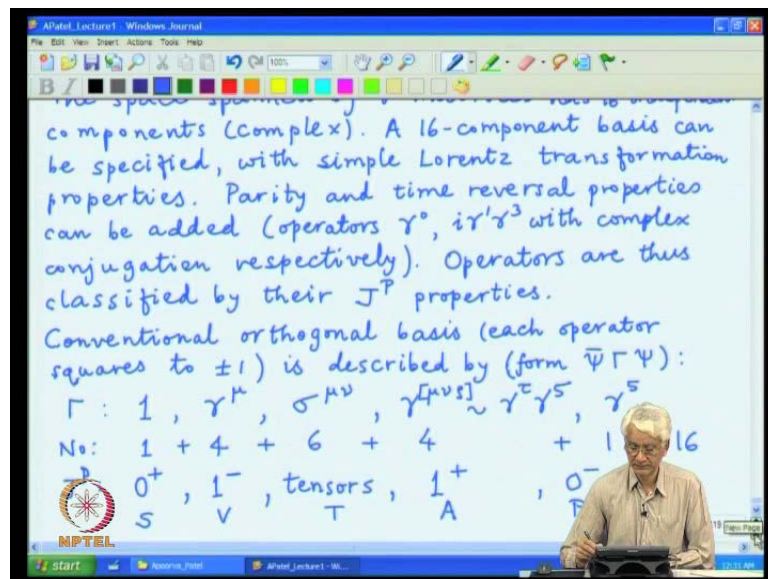 APatel_Lecture1 - Windows Journal
File Edit View Insert Actions Tools Help
100%
B I
components (complex). A 16-component basis can
be specified, with simple Lorentz transformation
properties. Parity and time reversal properties
can be added (operators γ⁰, iγ¹γ³ with complex
conjugation respectively). Operators are thus
classified by their Jᴾ properties.
Conventional orthogonal basis (each operator
squares to ±1) is described by (form Ψ̄ Γ Ψ):
Γ : 1 , γ^μ , σ^μν , γ^[μνρ] ~ γ^τ γ⁵ , γ⁵
No: 1 + 4 + 6 + 4 + 1 16
0⁺ , 1⁻ , tensors , 1⁺ , 0⁻
S V T A P
NPTEL
New Page
start Apoorva_Patel APatel_Lecture1 - Wi... 12:31 AM